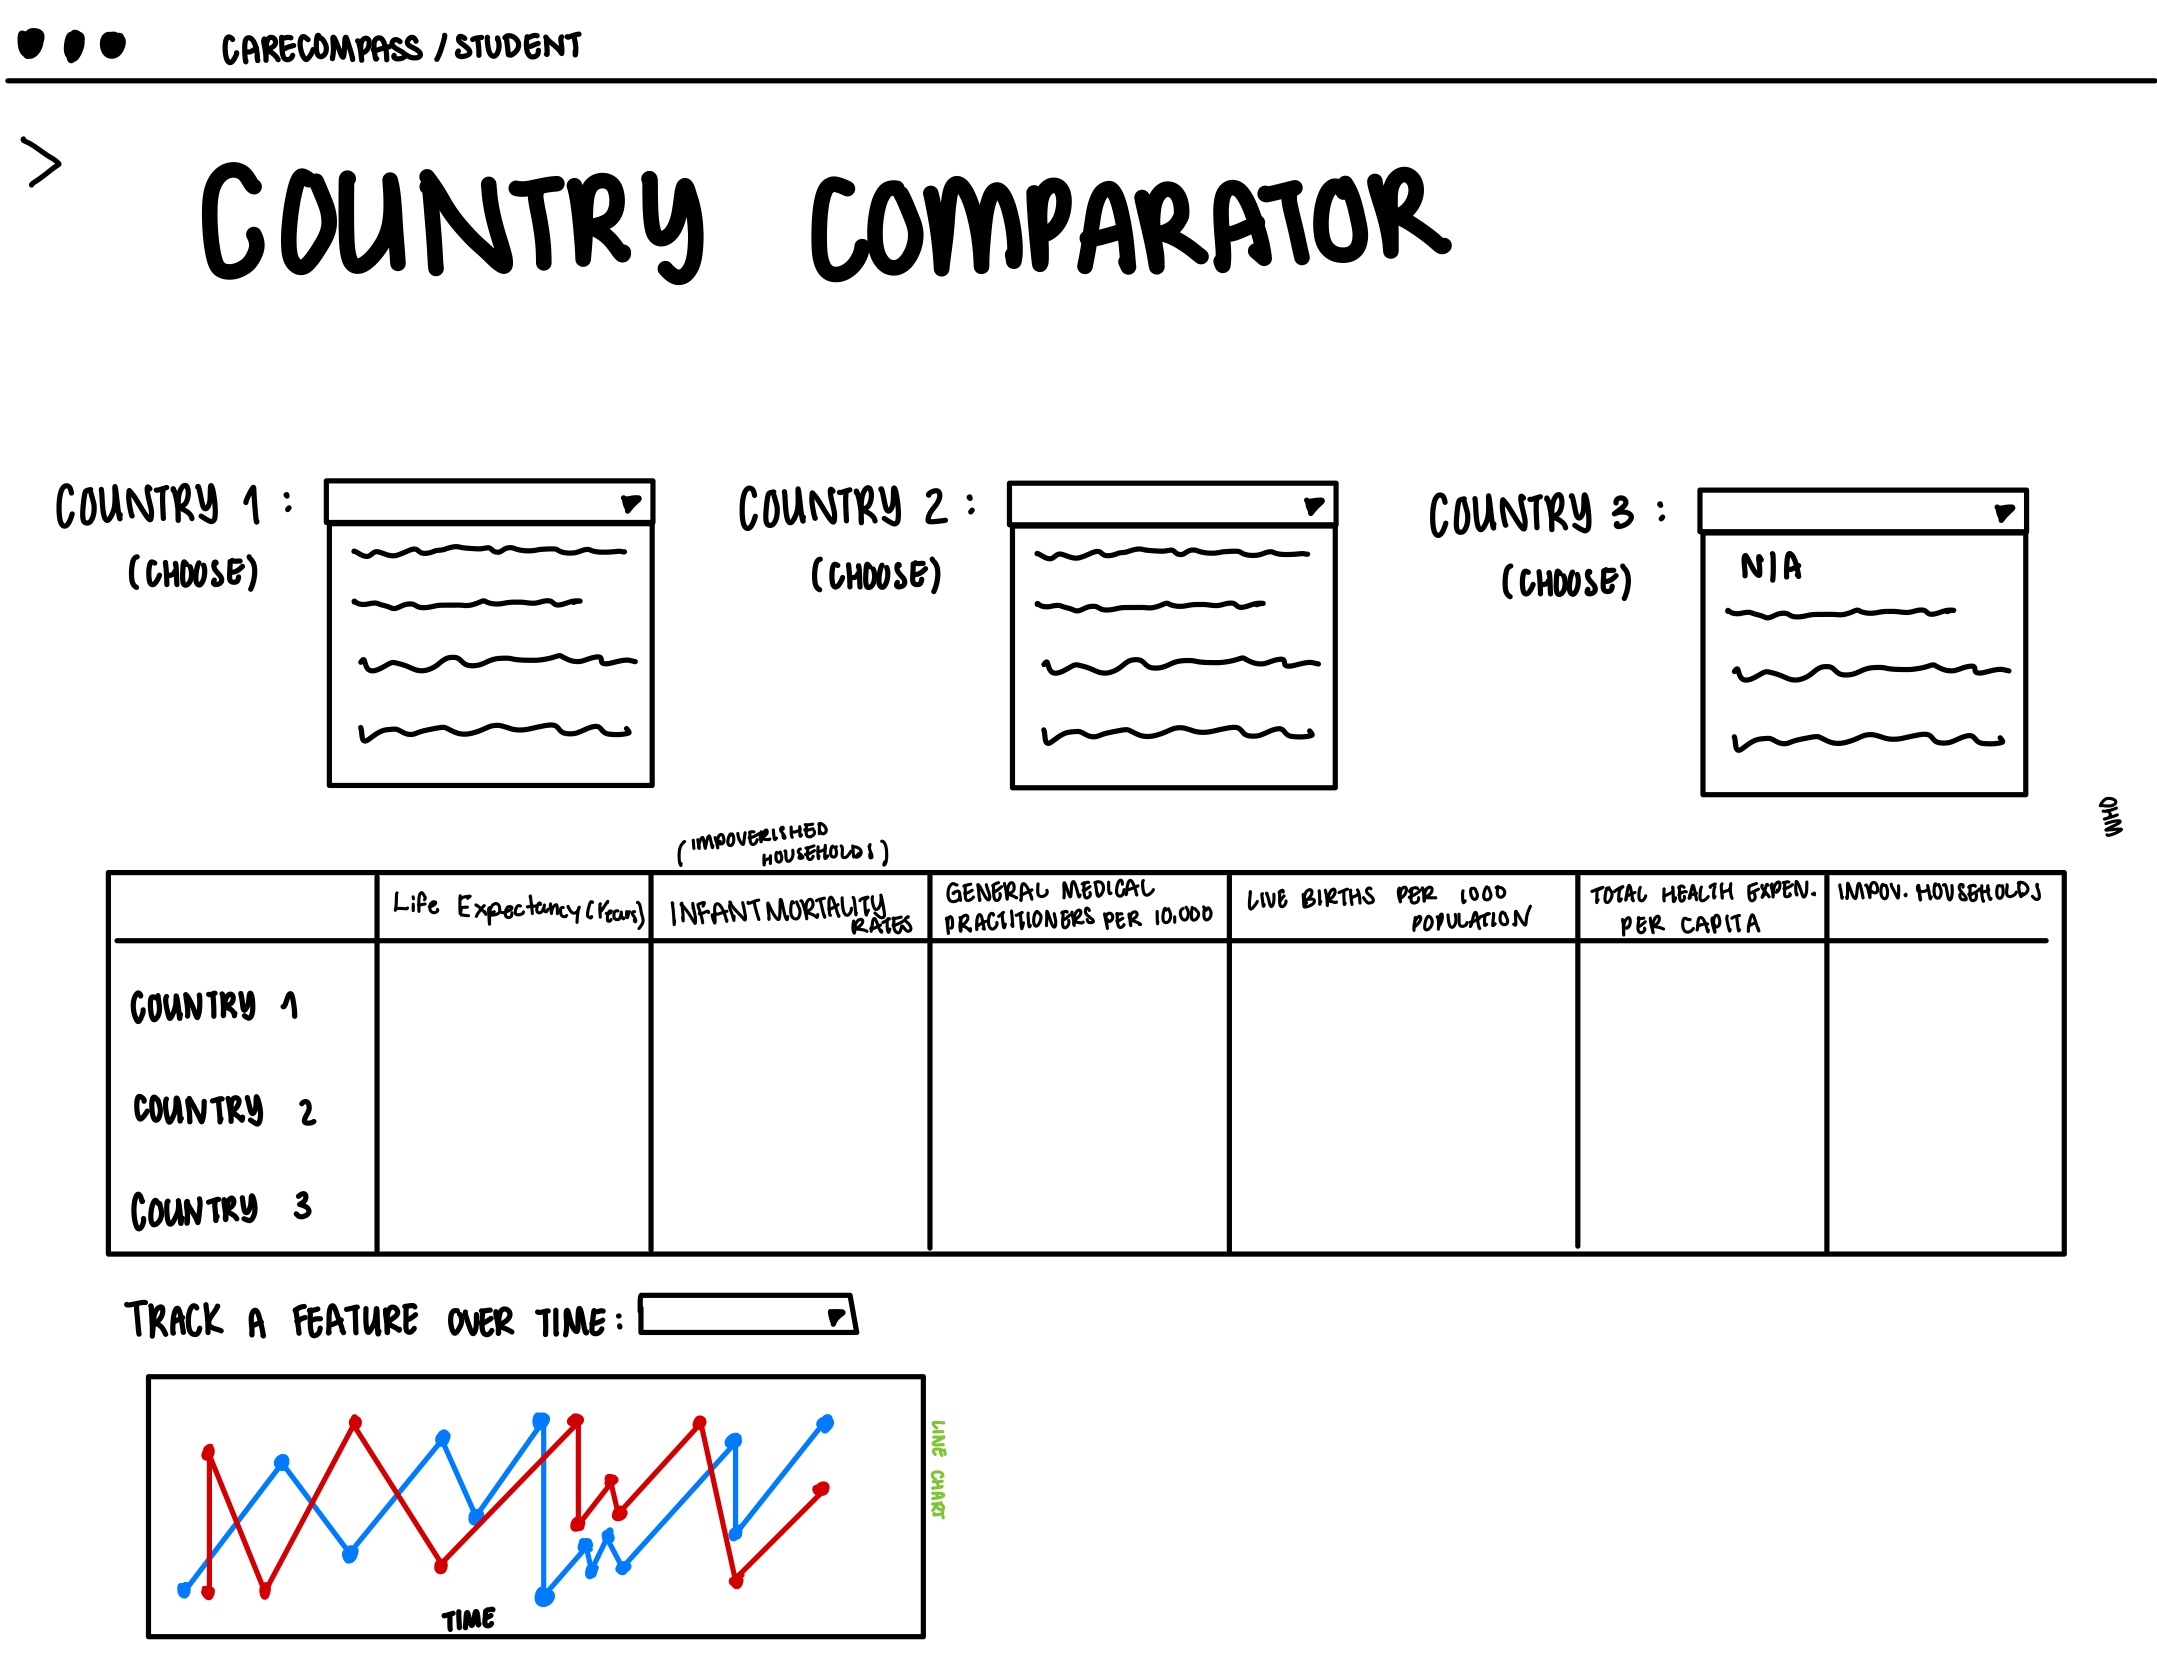 CARECOMPASS / STUDENT
>
COUNTRY COMPARATOR
COUNTRY 1 :
(CHOOSE)
COUNTRY 2 :
(CHOOSE)
COUNTRY 3 :
(CHOOSE)
N/A
WHO
(IMPOVERISHED
HOUSEHOLDS)
Life Expectancy (Years)
INFANT MORTALITY
RATES
GENERAL MEDICAL
PRACTITIONERS PER 10,000
LIVE BIRTHS PER 1000
POPULATION
TOTAL HEALTH EXPEN.
PER CAPITA
IMPOV. HOUSEHOLDS
COUNTRY 1
COUNTRY 2
COUNTRY 3
TRACK A FEATURE OVER TIME:
LINE CHART
TIME